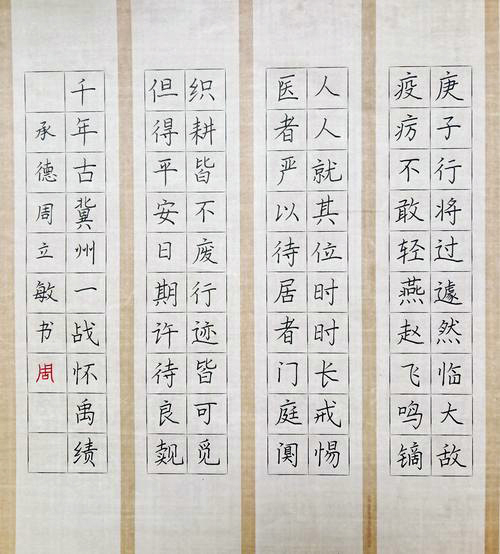 庚子行将过遽然临大敌
疫疠不敢轻燕赵飞鸣镝
人人就其位时时长戒惕
医者严以待居者门庭阒
织耕皆不废行迹皆可觅
但得平安日期许待良觌
千年古冀州一战怀禹绩
承德周立敏书
周